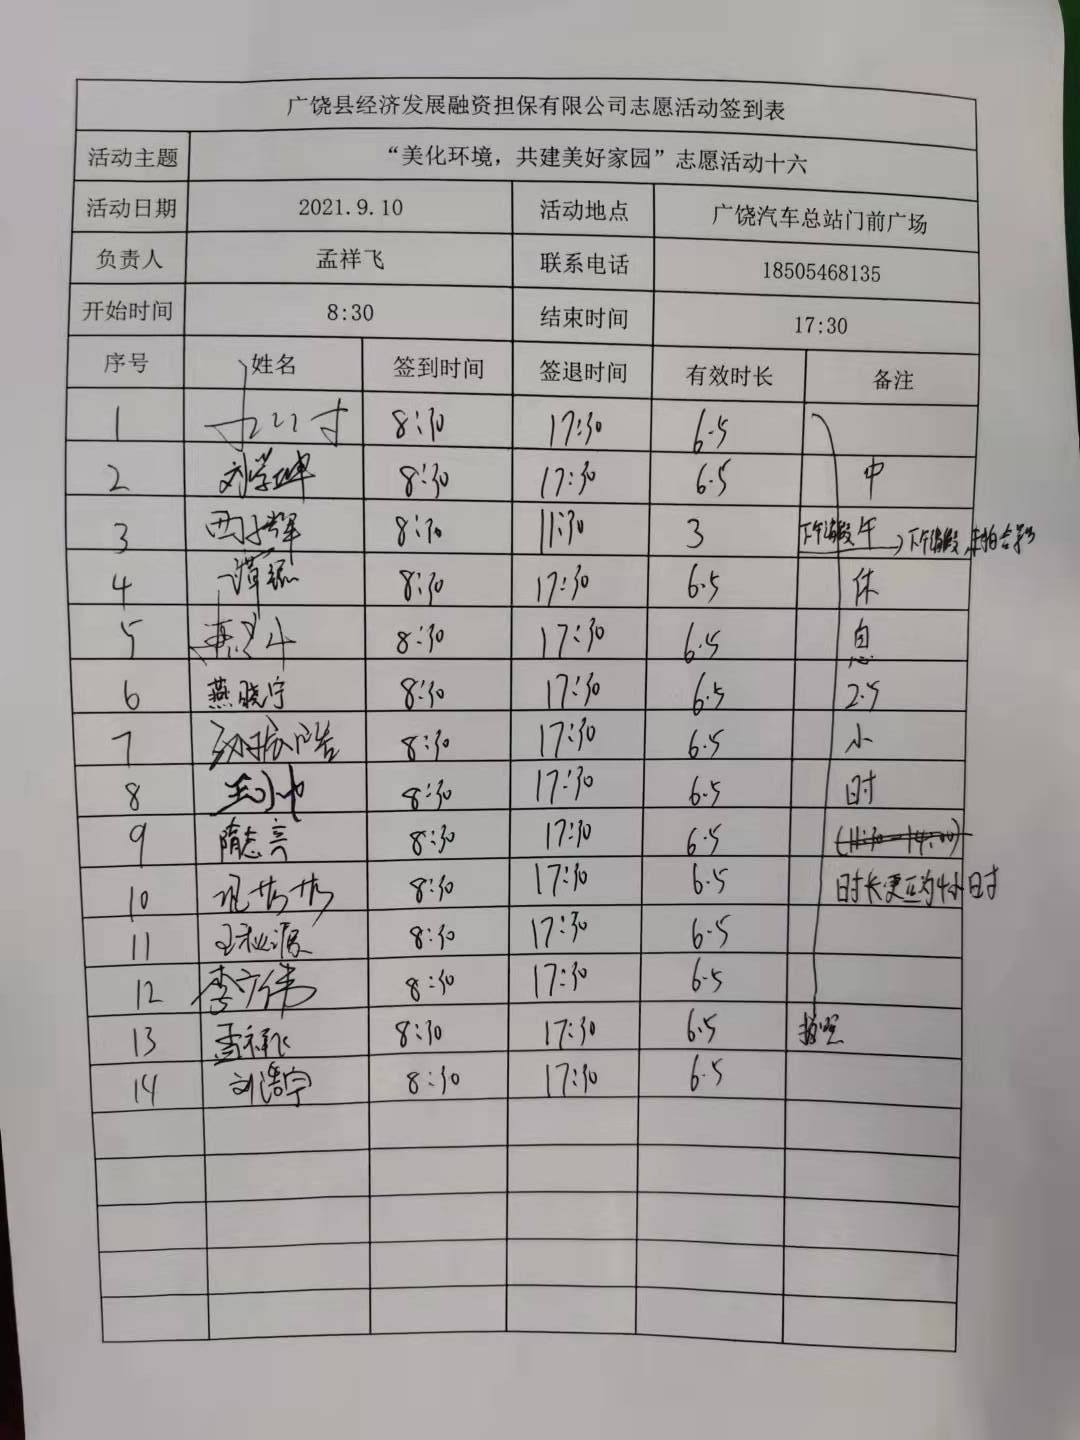 广饶县经济发展融资担保有限公司志愿活动签到表
活动主题 “美化环境，共建美好家园”志愿活动十六
活动日期 2021.9.10 活动地点 广饶汽车总站门前广场
负责人 孟祥飞 联系电话 18505468135
开始时间 8:30 结束时间 17:30
序号 姓名 签到时间 签退时间 有效时长 备注
1 8:30 17:30 6.5
2 刘学坤 8:30 17:30 6.5 中
3 8:30 11:30 3 下午请假 午 下午请假,未拍合影
4 谭 8:30 17:30 6.5 休
5 8:30 17:30 6.5 息
6 燕晓宁 8:30 17:30 6.5 2.5
7 8:30 17:30 6.5 小
8 8:30 17:30 6.5 时
9 隋志亮 8:30 17:30 6.5 (11:30-14:00)
10 8:30 17:30 6.5 时长更正为4小时
11 王 源 8:30 17:30 6.5
12 李 伟 8:30 17:30 6.5
13 孟祥飞 8:30 17:30 6.5 拍照
14 刘 宁 8:30 17:30 6.5